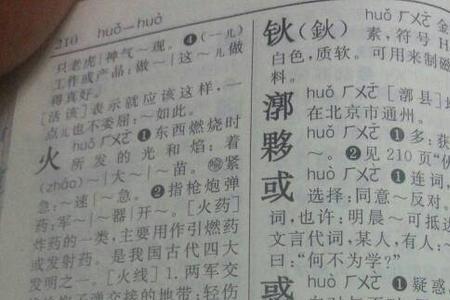 210 huǒ—huò
只老虎|神气～现。❹(一儿)
工作或产品:做～|这～儿做
得真好。
[活该]表示就应该这样,一
点儿也不委屈:～如此。
火 huǒ ㄏㄨㄛˇ ❶东西燃烧时
所发的光和焰:着
(zháo)～|大～|～苗。㊀紧
急:～速|～急。❷指枪炮弹
药:军～|～器|开～。[火药]
炸药的一类,主要用作引燃药
或发射药。是我国古代四大
发明之一。[火线]1.两军交
弹交接的地带:轻伤
钬(鈥) huǒ ㄏㄨㄛˇ 金
素,符号H
白色,质软。可用来制磁
料。
漷 huǒ ㄏㄨㄛˇ [漷县]
在北京市通州。
夥 huǒ ㄏㄨㄛˇ ❶多:获
～。❷见210页“伙
或 huò ㄏㄨㄛˋ ❶连词,
选择:同意～反对。
词,也许:明晨～可抵达
文言代词,某人,有人:～
曰:“何不为学?”
惑 huò ㄏㄨㄛˋ ❶疑惑